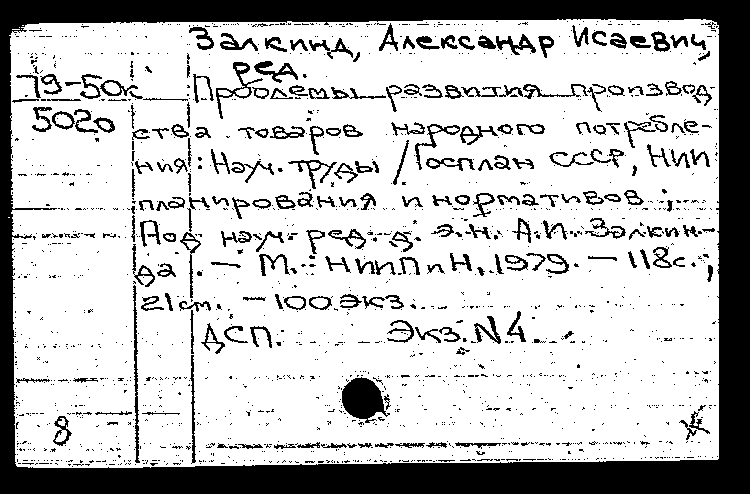 Залкинд, Александр Исаевич,
ред.
79-50к Проблемы развития производ-
5020 ства товаров народного потребле-
ния: Науч. труды / Госплан СССР, НИИ
планирования и нормативов;
Под науч. ред. д. э. н. А.И. Залкин-
да. — М.: НИИПиН, 1979. — 118с.;
21см. — 100 экз.
ДСП. Экз. N4.
8